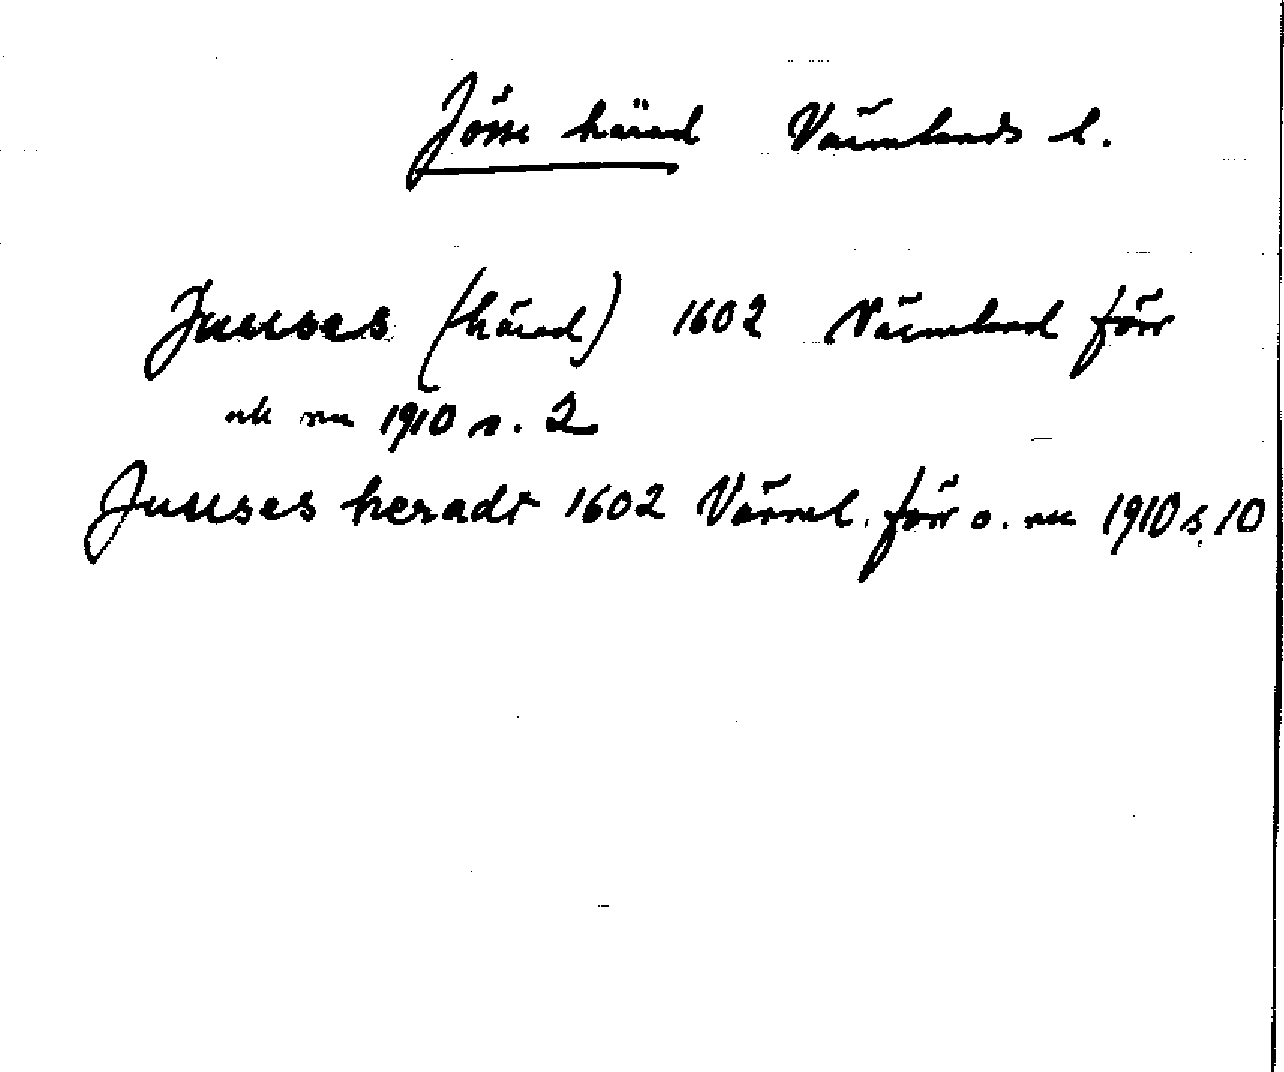 Jösse härad Värmlands l.
Juuses (härad) 1602 Värmland förr
och nu 1910 s. 2
Juuses heradt 1602 Värml. förr o. nu 1910 s. 10